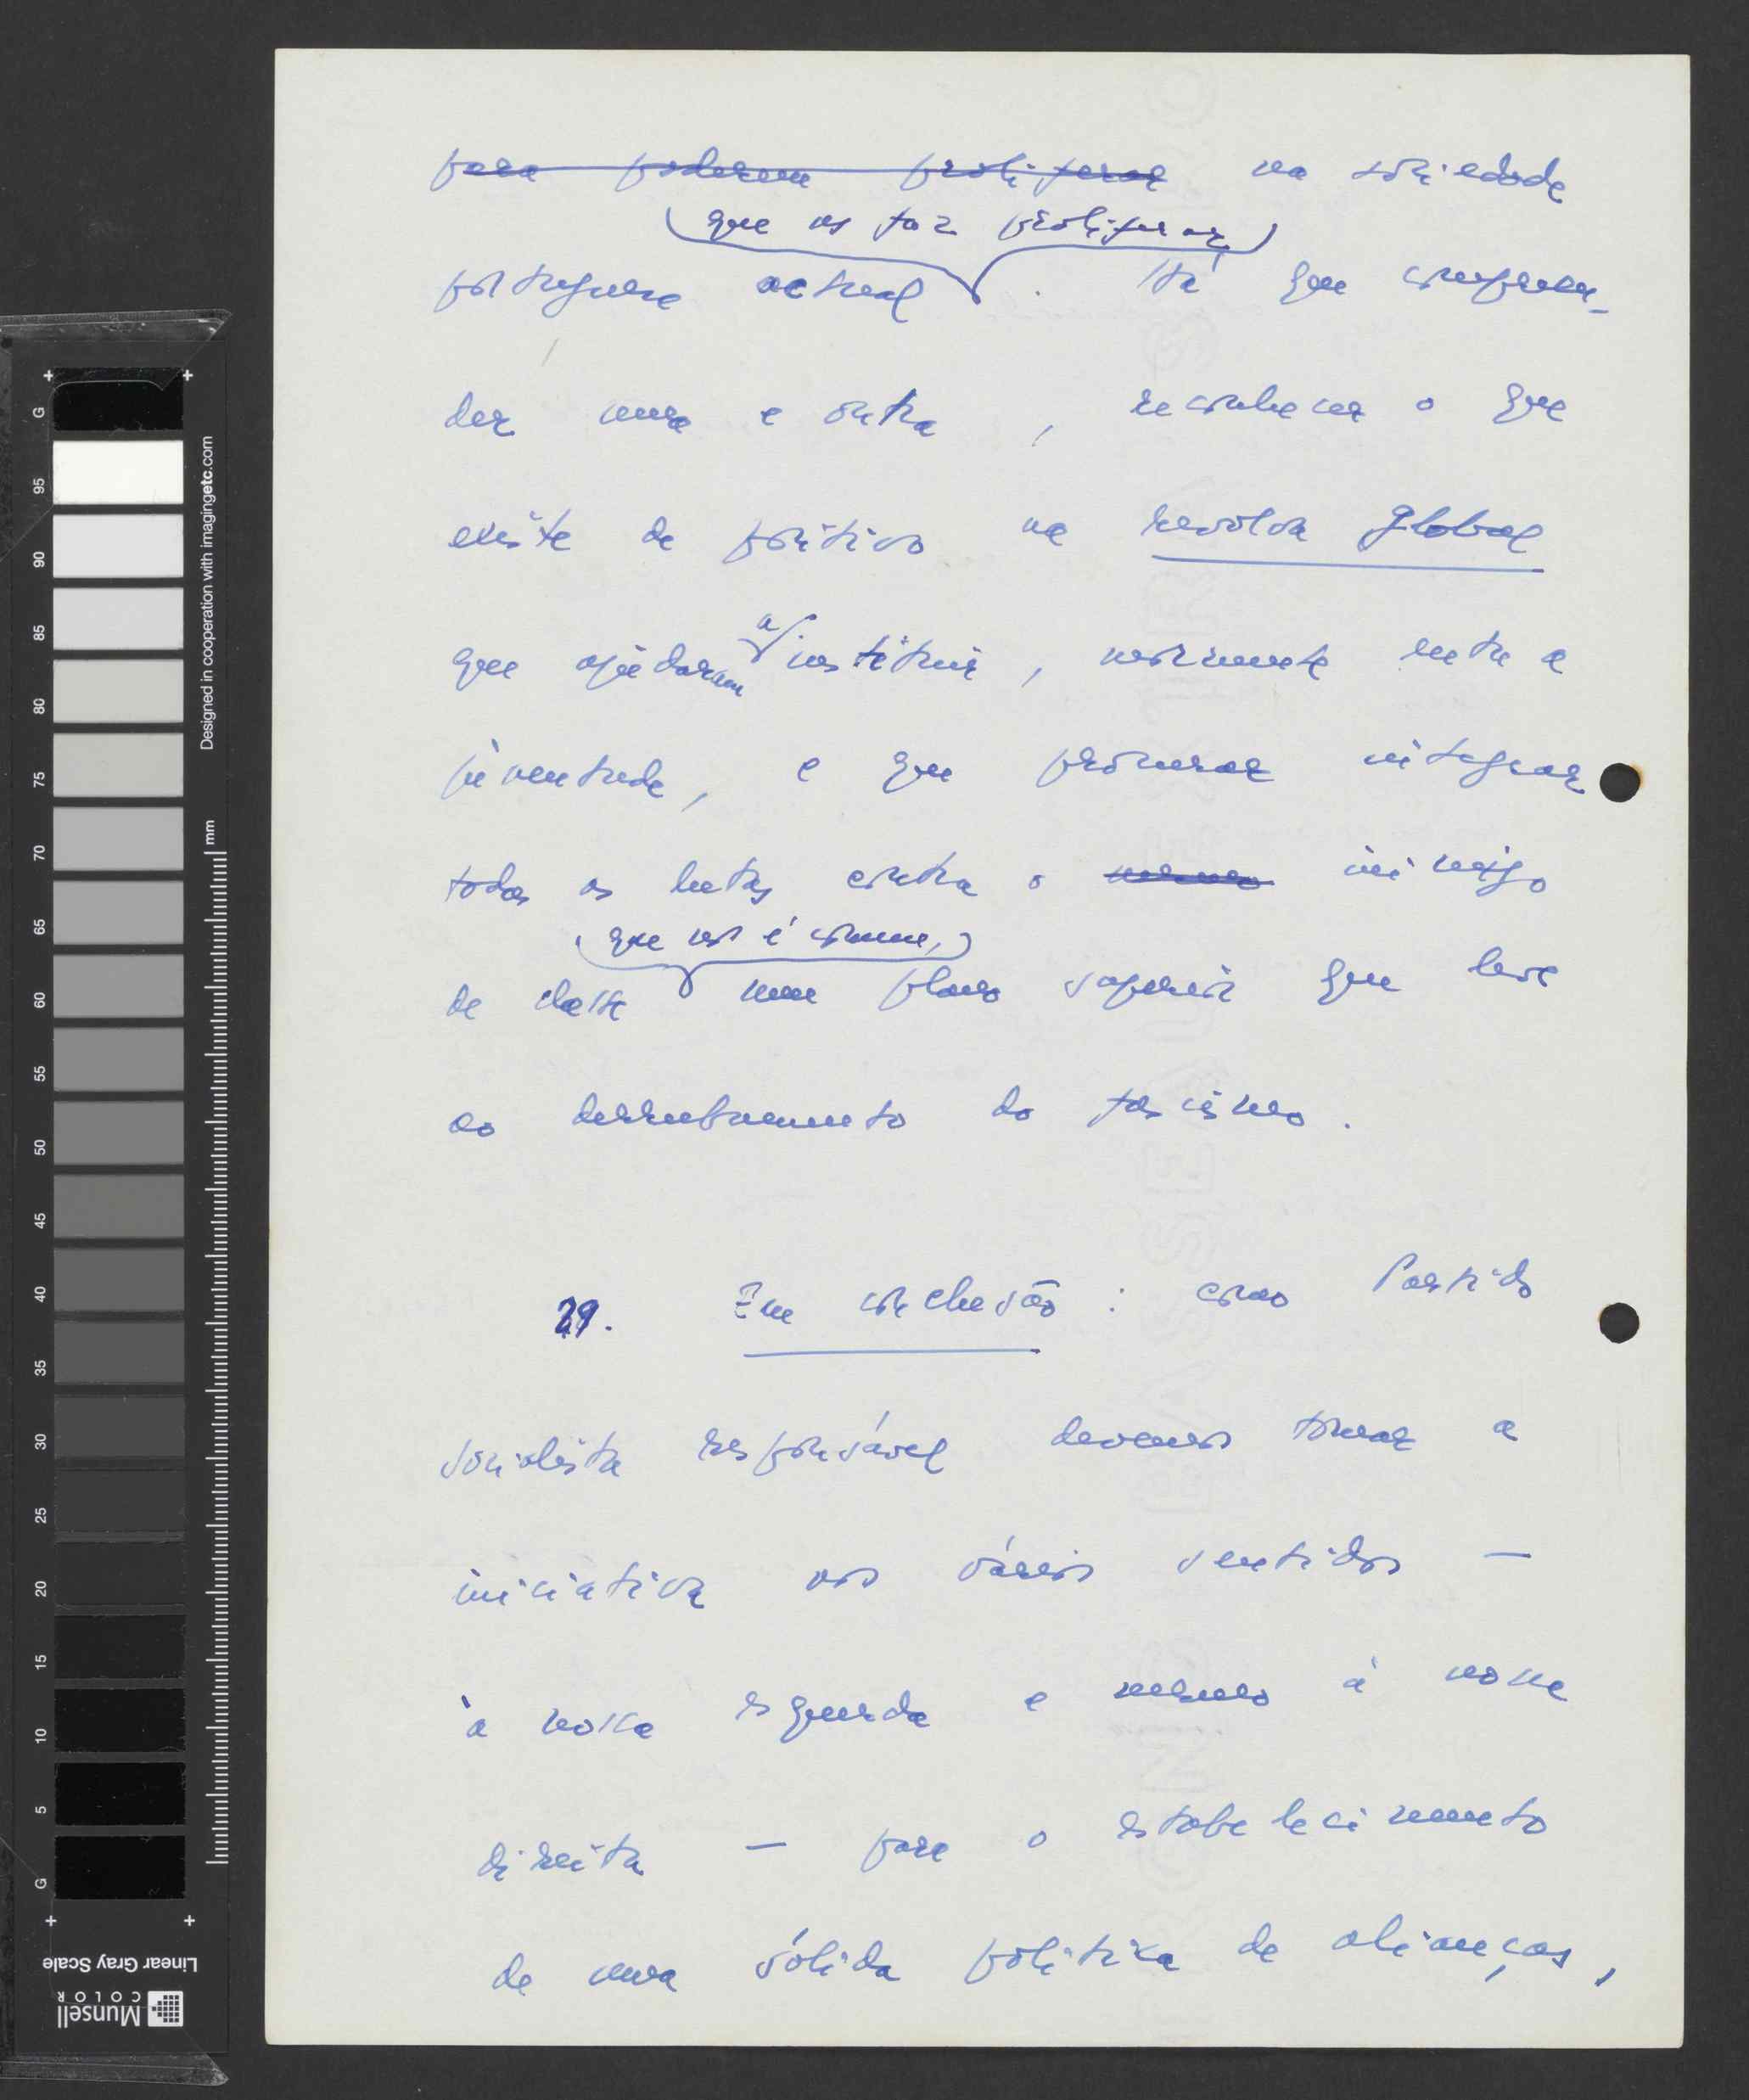 para poderem proliferar na sociedade
que os faz proliferar
portuguesa actual. Há que compreen-
der uma e outra, reconhecer o que
existe de positivo na revolta global
que ajudaram a instituir, mormente entre a
juventude, e que procurar integrar
todas as lutas contra o mesmo inimigo
que nos é comum,
de classe num plano superior que leve
ao derrubamento do fascismo.
29. Em conclusão: como Partido
socialista responsável devemos tomar a
iniciativa nos vários sentidos —
à nossa esquerda e mesmo à nossa
direita — para o estabelecimento
de uma sólida política de alianças,
Designed in cooperation with imagingetc.com
mm
G 95 90 85 80 75 70 65 60 55 50 45 40 35 30 25 20 15 10 5 G
Linear Gray Scale
Munsell
COLOR